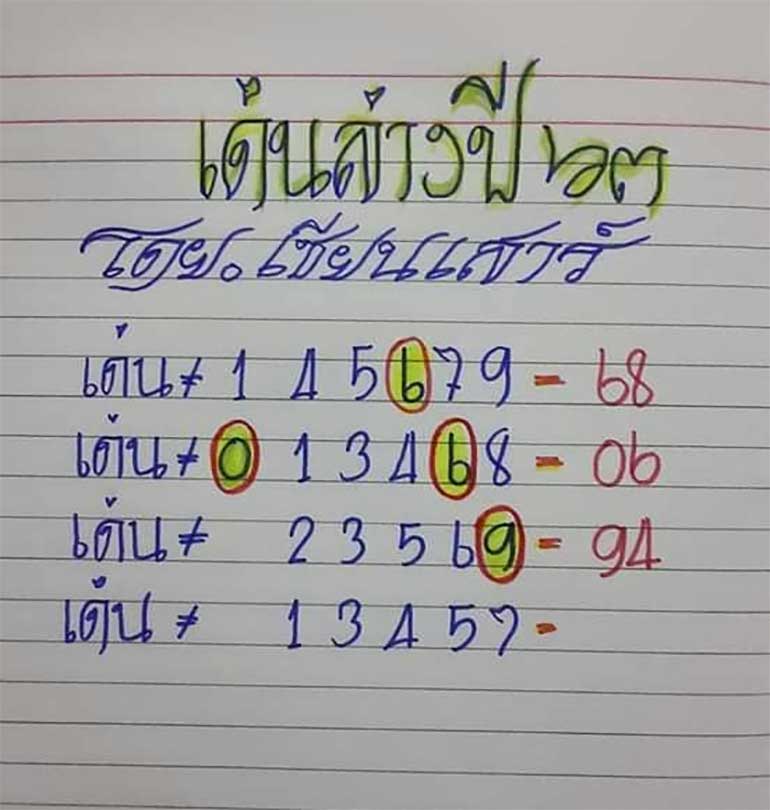 เด่นล่างปี ๖๓
โดย. เซียนเสาร์
เด่น ≠ 1 4 5 6 7 9 = 68
เด่น ≠ 0 1 3 4 6 8 = 06
เด่น ≠ 2 3 5 6 9 = 94
เด่น ≠ 1 3 4 5 7 -